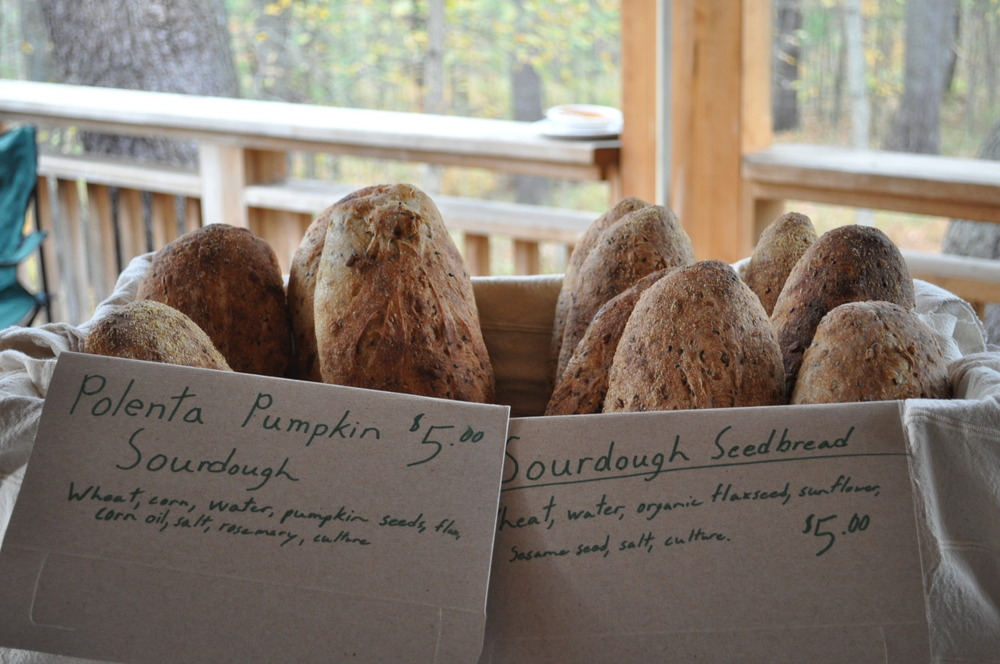 Polenta Pumpkin $5.00
Sourdough
Wheat, corn, water, pumpkin seeds, flax,
corn oil, salt, rosemary, culture
Sourdough Seedbread
heat, water, organic flaxseed, sunflower,
Sesame seed, salt, culture. $5.00